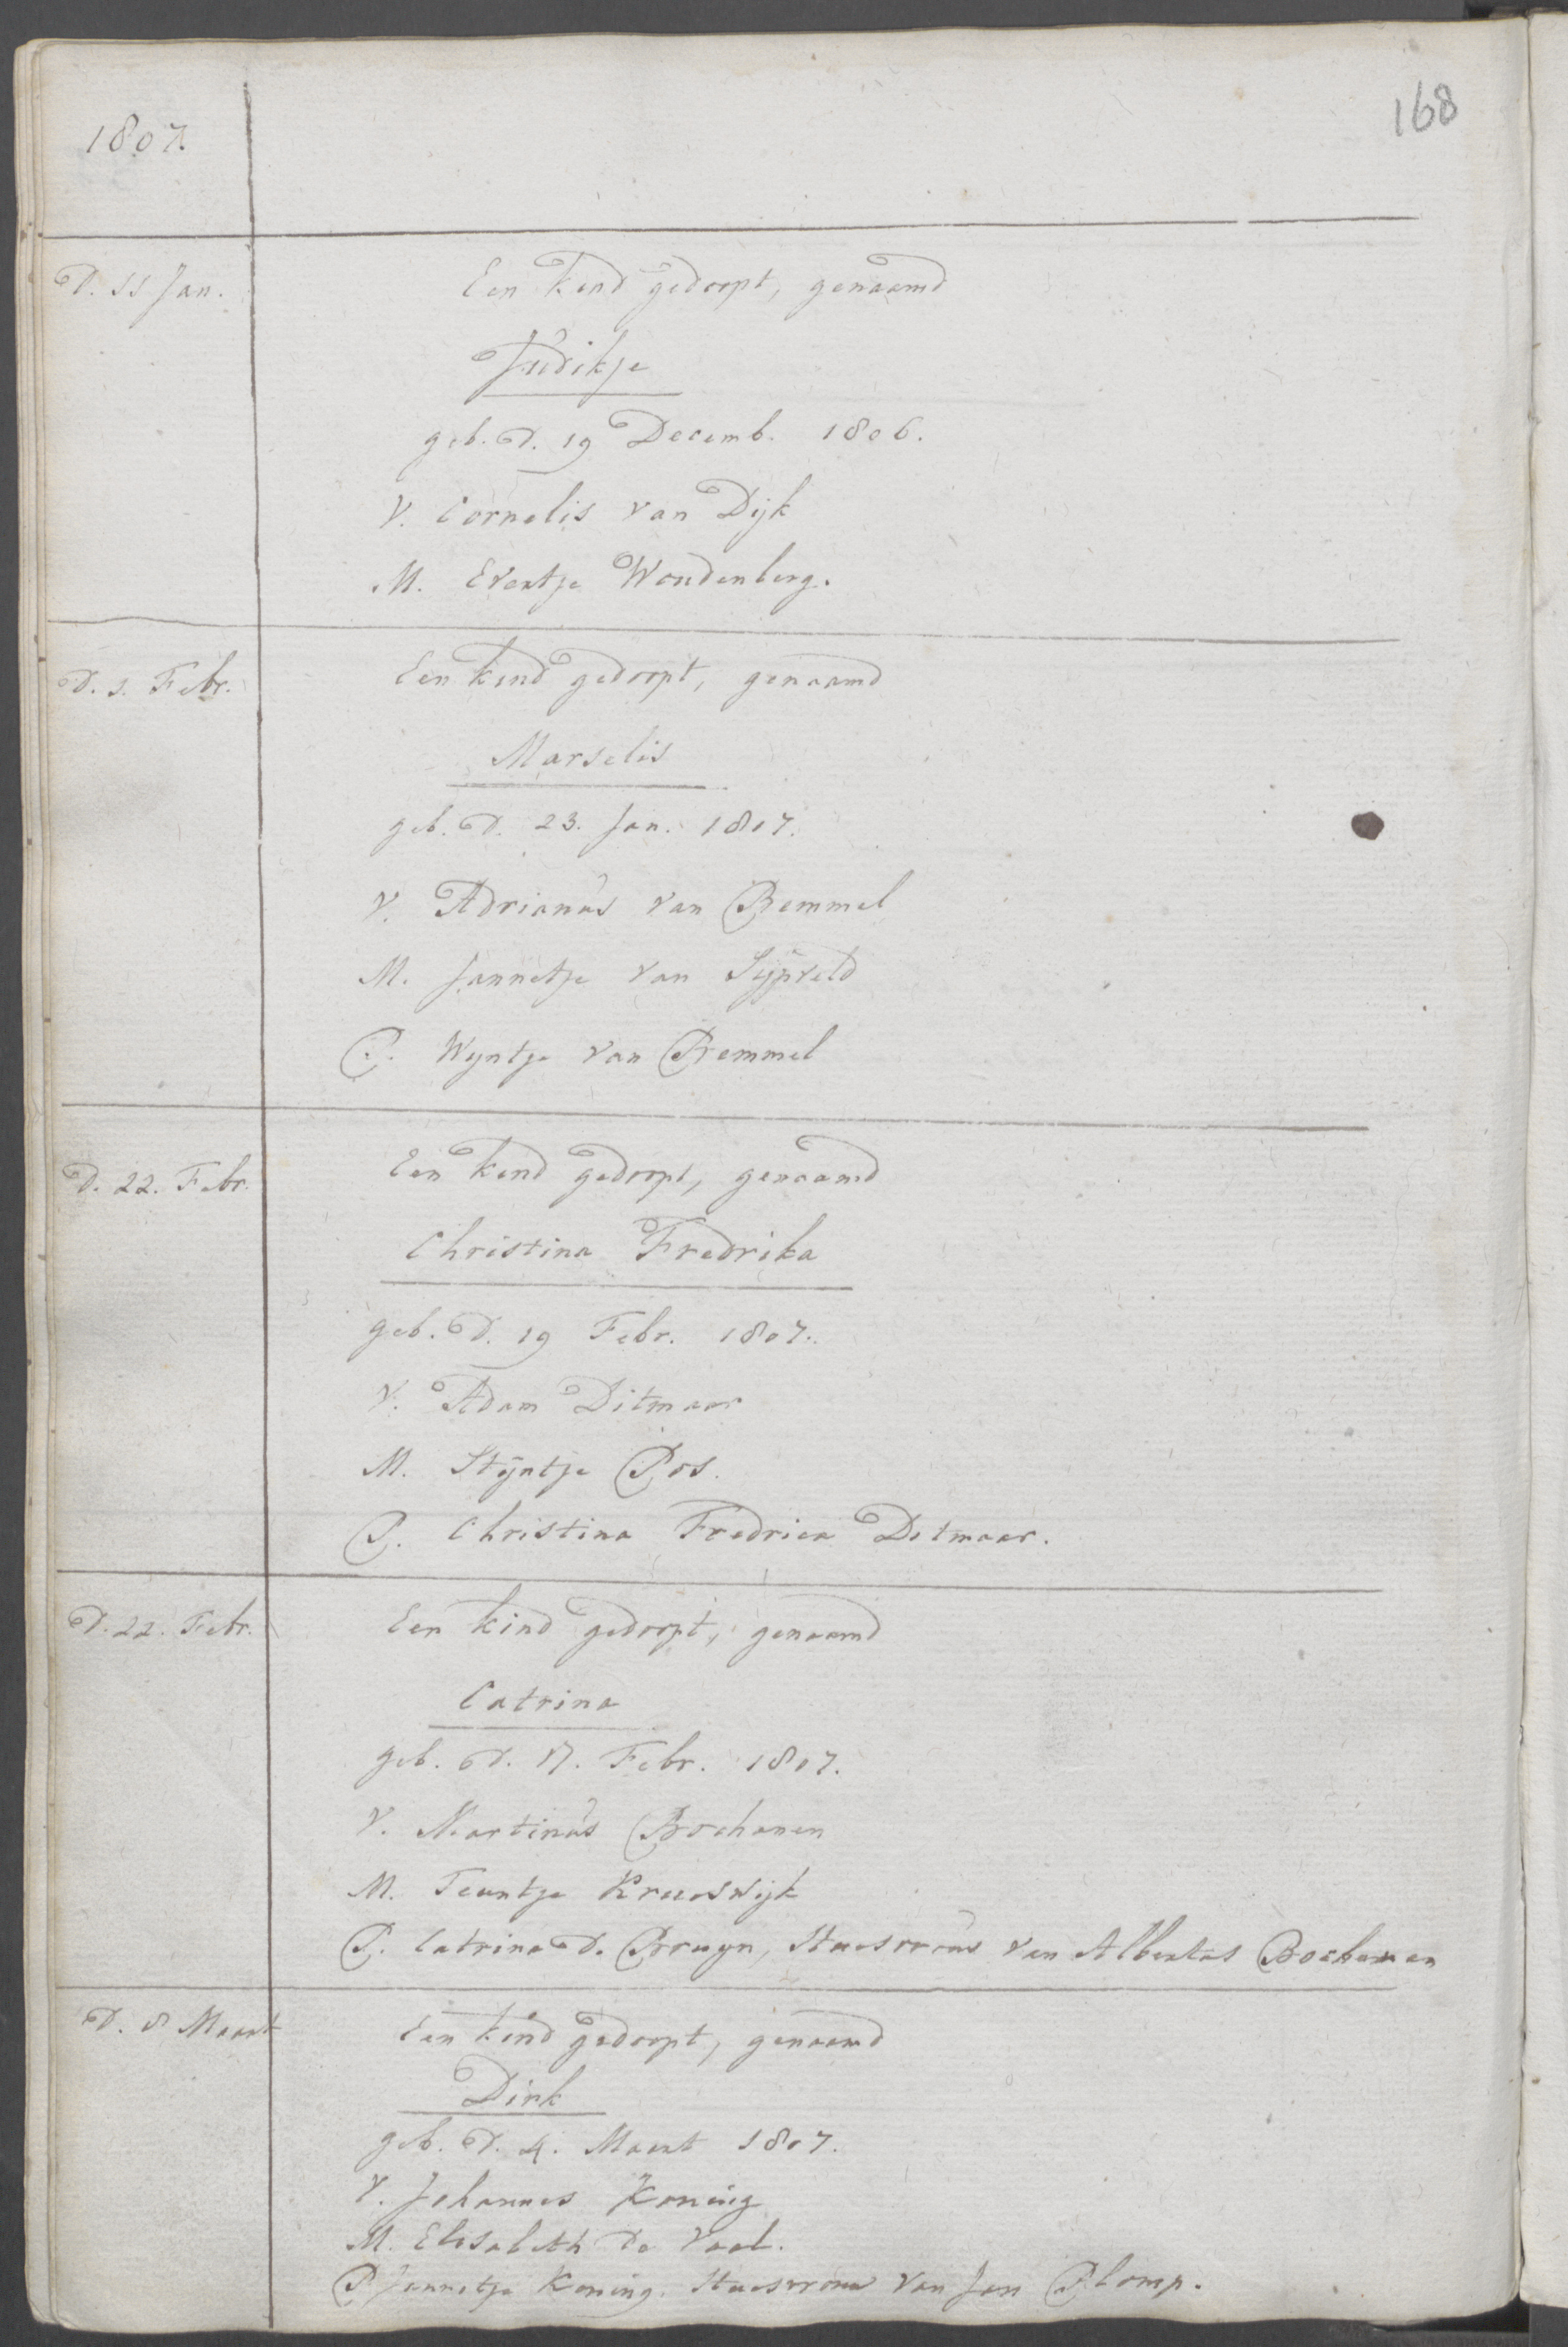 168
1807.
D. 11 Jan.
Een kind gedoopt, genaamd
Judikje
geb. D. 19 Decemb. 1806.
V. Cornelis van Dijk
M. Evertje Woudenberg.
D. 1. Febr.
Een kind gedoopt, genaamd
Marselis
geb. D. 23. Jan. 1807.
V. Adrianus van Bemmel
M. Jannetje van Sijpveld
P. Wyntje van Bemmel
D. 22. Febr.
Een kind gedoopt, genaamd
Christina Fredrika
geb. D. 19 Febr. 1807.
V. Adam Ditmaar
M. Stijntje Pos.
P. Christina Fredrica Ditmaar.
D. 22. Febr.
Een kind gedoopt, genaamd
Catrina
geb. D. 17. Febr. 1807.
V. Martinus Bochanen
M. Teuntje Kruiswijk
P. Catrina D. Bruyn, Huisvrouw van Albertus Bochanen
D. 8 Maart
Een kind gedoopt, genaamd
Dirk
geb. D. 4. Maart 1807.
V. Johannes Koning
M. Elisabeth De Vaal.
P. Jannetje Koning. Huisvrouw van Jan Plomp.